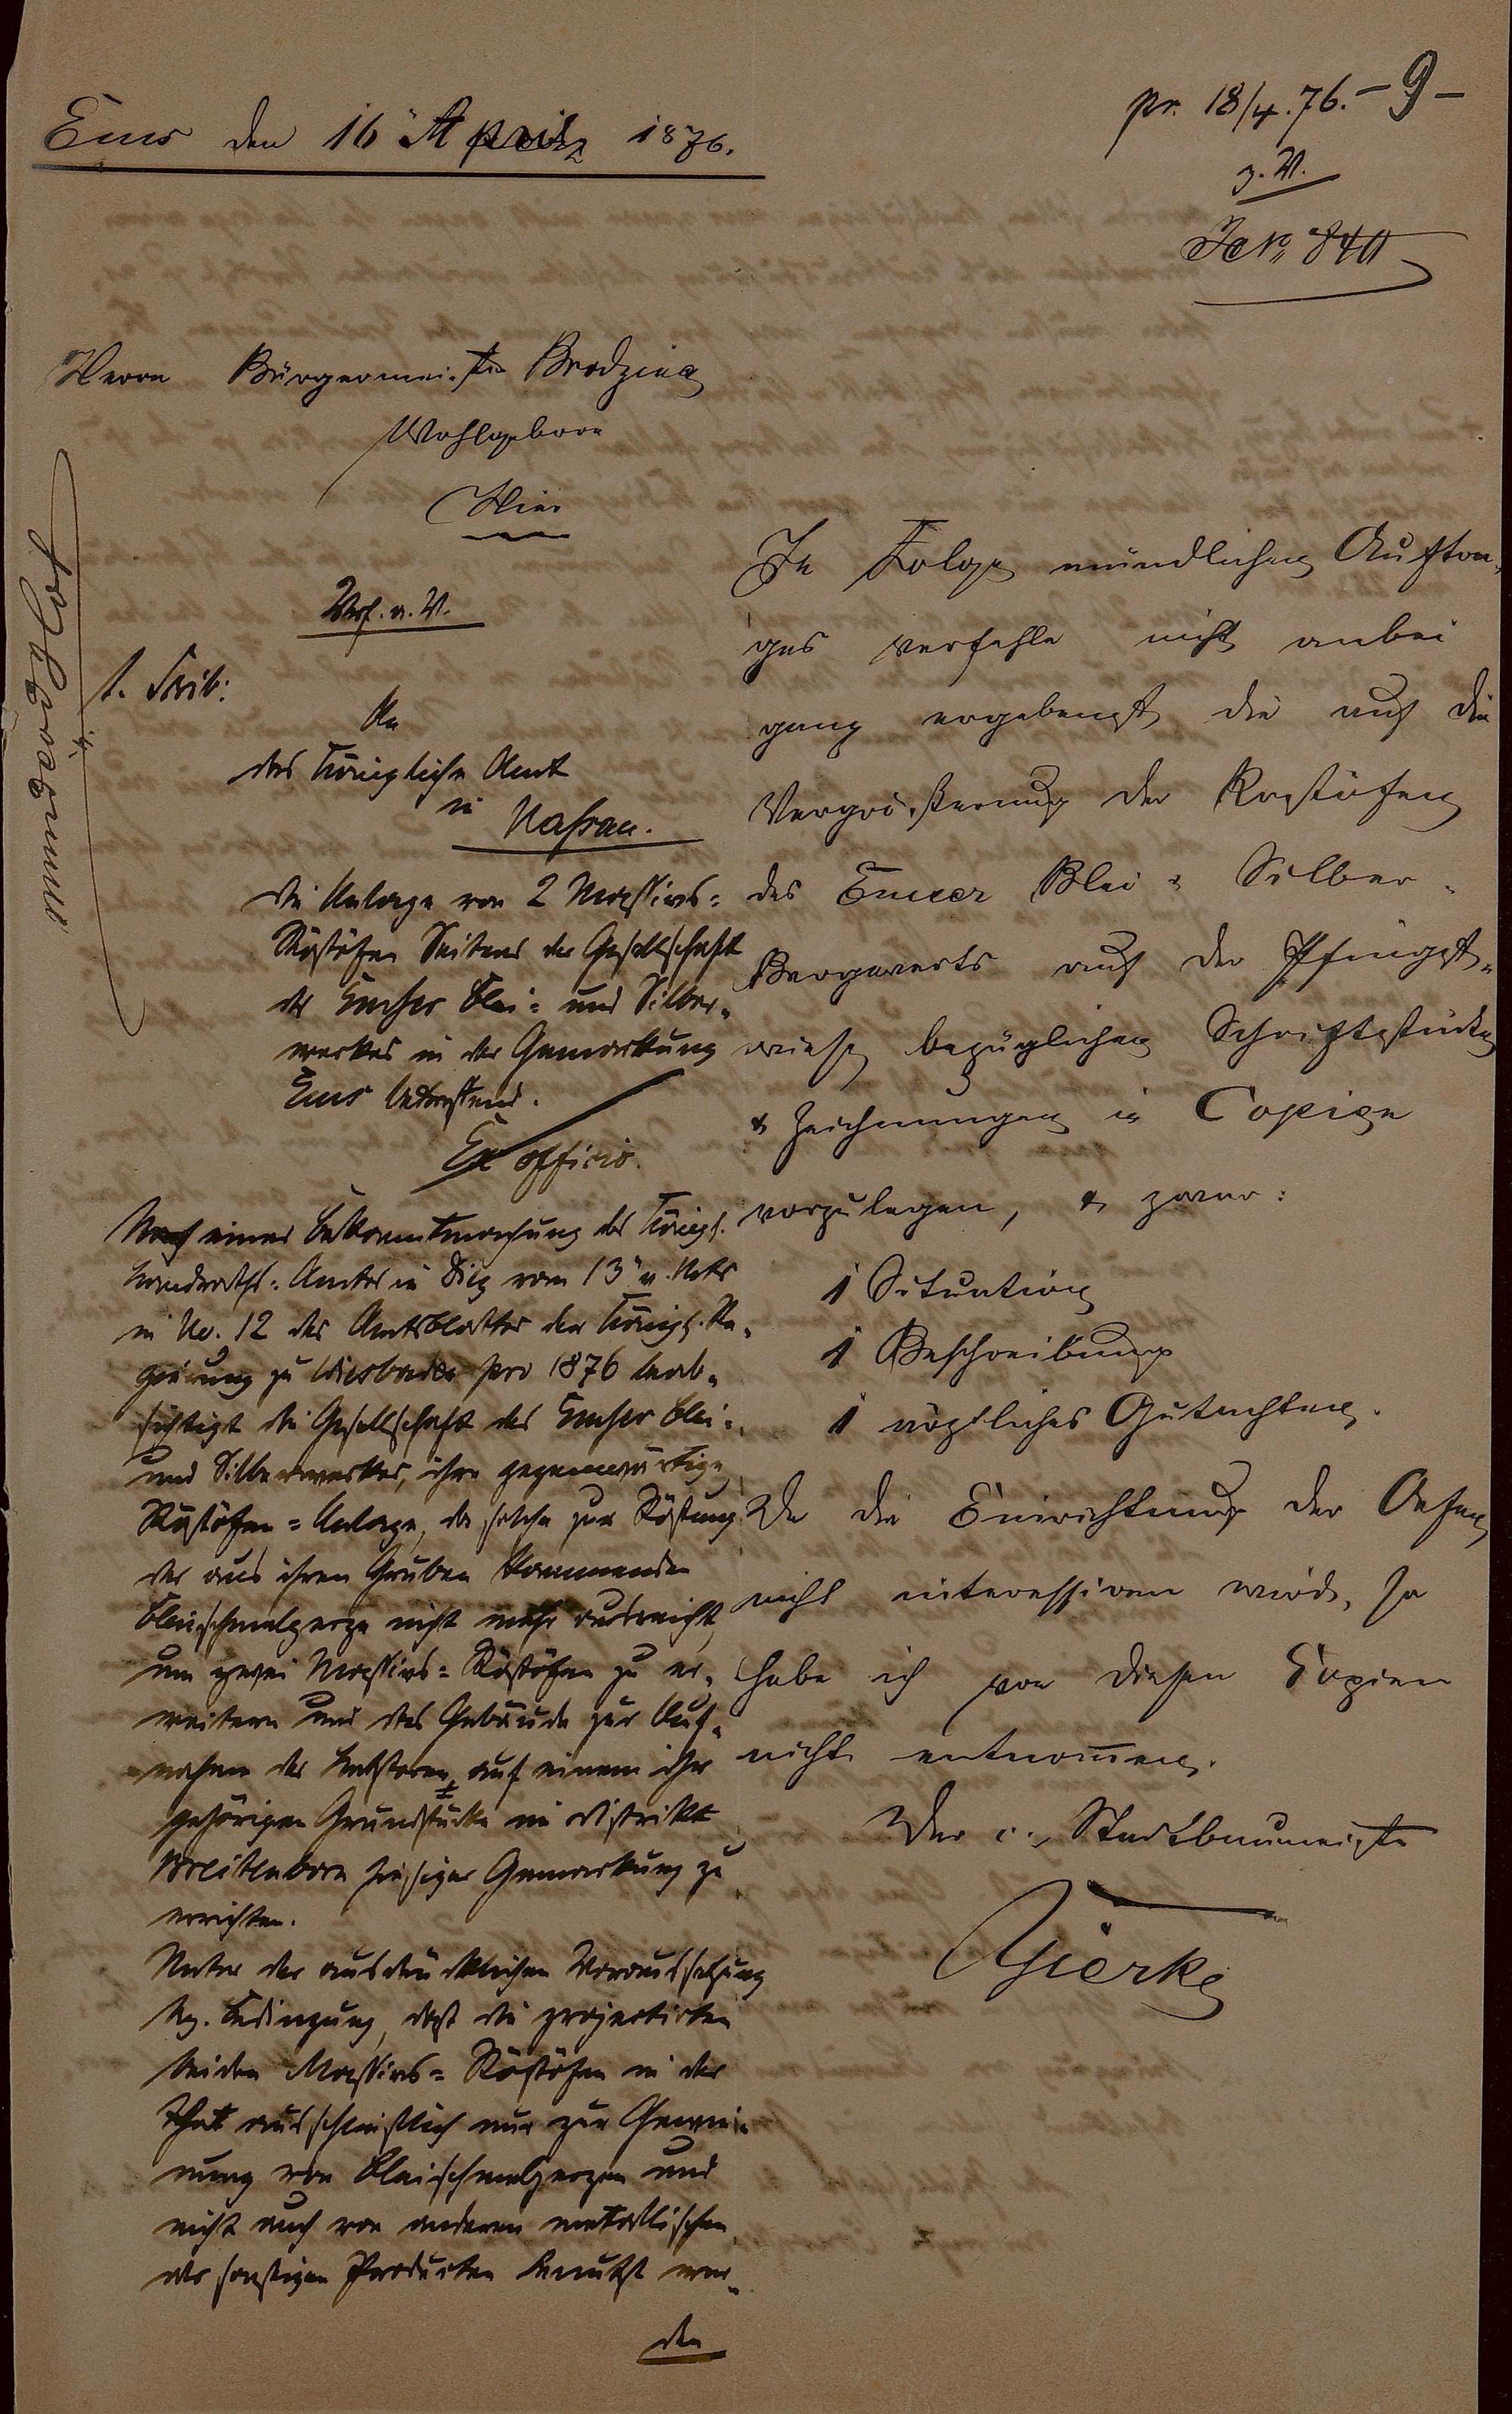 pr. 18/4. 76. – 9 –
Ems den 16 April 1876.
z. V.
J. No. 840
Herrn Bürgermeister
Wohlgeboren
Hier
In Folge mündlichen Auftra-
ges verfehle nicht anbei
ganz ergebenst die auf die
Vergrößerung der Röstöfen
des Emser Blei & Silber-
Bergwerks auf der Pfingst-
wiese bezüglichen Schriftstücke
& Zeichnungen in Copien
vorzulegen, & zwar:
1 Situation
1 Beschreibung
1 ärztliches Gutachten.
Da die Einrichtung der Oefen
nicht interessiren wird, so
habe ich von diesen Copien
nicht entnommen.
Der c. Stadtbaumeister
Gierke
Verf. a. V.
1. Scrib:
An
das Königliche Amt
in
Nassau.
die Anlage von 2 Massivs-
Röstöfen Seitens der Gesellschaft
des Emser Blei- und Silber-
werkes in der Gemarkung
Ems betreffend.
Ex officio.
Nach einer Bekanntmachung des Königl.
Landraths-Amtes in Diez vom 13" v. Mts
in No. 12 des Amtsblattes der Königl. Re-
gierung zu Wiesbaden pro 1876 beab-
sichtigt die Gesellschaft des Emser Blei-
und Silberwerkes, ihre gegenwärtige
Röstöfen-Anlage, da solche zur Röstung
der aus ihren Gruben kommenden
Bleischmelzerze nicht mehr ausreicht,
um zwei Massivs-Röstöfen zu er-
weitern und das Gebäude zur Auf-
nahme der Letzteren auf einem ihr
gehörigen Grundstücke im Distrikt
Breitenborn hiesiger Gemarkung zu
errichten.
Unter der ausdrücklichen Voraussetzung
bez. Bedingung, daß die projectirten
beiden Massivs-Röstöfen in der
That ausschließlich nur zur Gewin-
nung von Bleischmelzerzen und
nicht auch von anderen metallischen
oder sonstigen Producten benutzt wer-
den